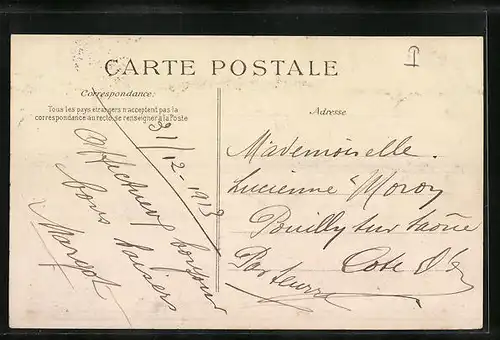 CARTE POSTALE
Correspondance:
Tous les pays étrangers n'acceptent pas la
correspondance au recto, se renseigner à la Poste
21/12-1913
Affectueux bonjour
bons baisers
Margot
Adresse
Mademoiselle.
Lucienne Moroy
Pouilly sur Saône
Cote d'Or